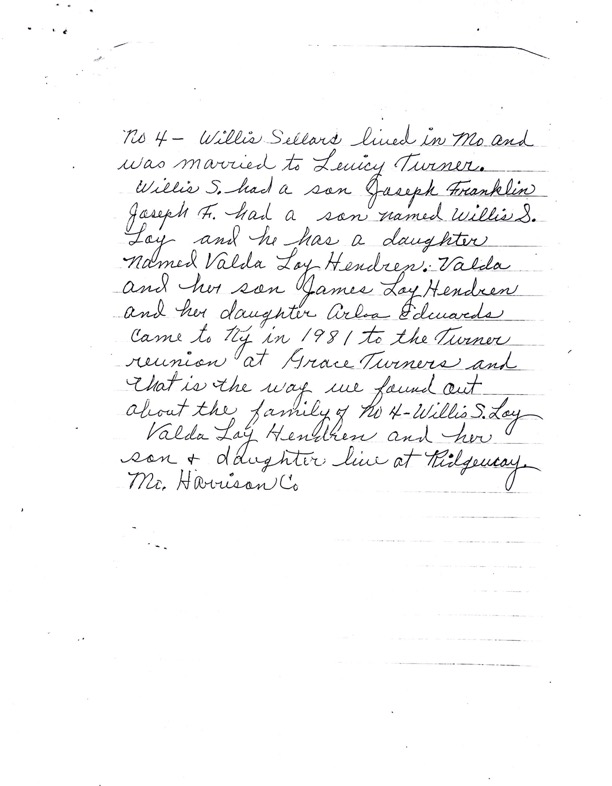 No 4 - Willis Sellars lived in Mo and
was married to Levicy Turner.
Willis S. had a son Joseph Franklin
Joseph F. had a son named Willis S.
Loy and he has a daughter
named Valda Loy Hendren. Valda
and her son James Loy Hendren
and her daughter Arloa Edwards
came to Ky in 1981 to the Turner
reunion at Grace Turners and
that is the way we found out
about the family of No 4 - Willis S. Loy
Valda Loy Hendren and her
son + daughter live at Ridgeway.
Mo. Harrison Co